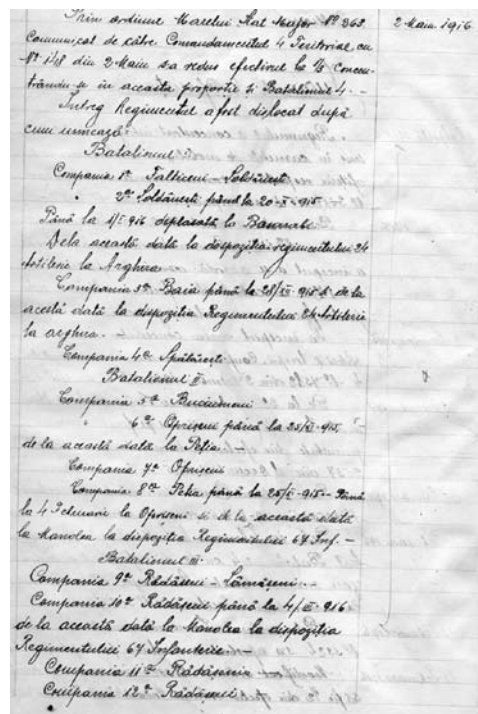 Prin ordinul Marelui Stat Major Nº 268
2 Maiu 1916
Comunicat de către Comandamentul 4 Teritorial cu
Nº 148 din 2 Maiu s'a redus efectivul la ⅓ Concen-
trându-se în aceasta proporție și Batalionul 4. -
Intreg Regimentul a fost dislocat după
cum urmează
Batalionul
Compania 1ª Falticeni - Soldănești
" 2ª Soldănești până la 20- -915
Până la 1/I 916 deplasată la
Dela această dată la dispoziția regimentului 24
Artilerie la Arghira
Compania 3ª Baia până la 28/ 915 și de la
acestă dată la dispoziția Regimentului 24 Artilerie
la arghira.
Compania 4ª Spătărești
Batalionul II
Compania 5ª Buciumeni
" 6ª Oprișeni până la 25/ 915
de la această dată la Petia -
Compania 7ª Oprișeni
Compania 8ª Petia până la 25/ -915 - Până
la 4 Februarie la Oprișeni și de la această dată
la Manolea la dispoziția Regimentului 67 Inf. -
Batalionul III.
Compania 9ª Rădășeni Lămășeni. -
Compania 10ª Rădășeni până la 4/ 916
de la această dată la Manolea la dispoziția
Regimentului 67 Infanterie -
Compania 11ª Rădășeni
Compania 12ª Rădășeni